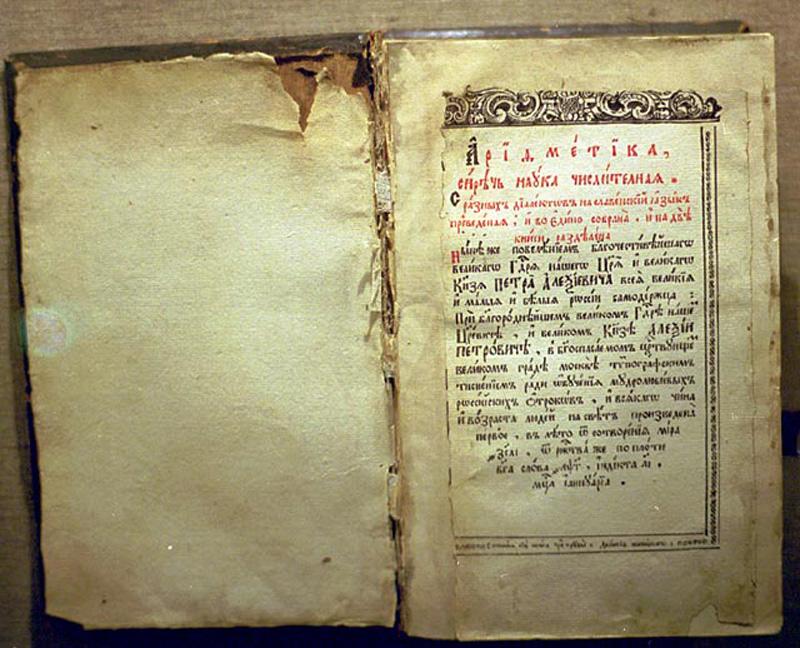 А҆ріѳмétіка,
си́рѣчь наѹ́ка числи́телнаѧ.
С̾ ра́зныхъ дїале́ктѡвъ на славе́нскїй ѧ҆зы́къ
преведе́наѧ, и҆ во є҆ди́но собрана̀, и҆ на двѣ̀
кни́ги раздѣлена̀
Ны́нѣ же повелѣ́нїемъ благочести́вѣйшагѡ
вели́кагѡ Гдⷭ҇рѧ на́шегѡ Цр҃ѧ̀ и҆ вели́кагѡ
Кн҃зѧ ПЕТРА̀ А҆ЛЕѮІ́ЕВИЧА всеѧ̀ вели́кїѧ
и҆ ма́лыѧ и҆ бѣ́лыѧ рѡссі́и самоде́ржца:
При благоро́днѣйшемъ вели́комъ Гдⷭ҇рѣ на́шемъ
Цр҃е́вичѣ, и҆ вели́комъ Кн҃зѣ А҆ЛЕѮІ́И
ПЕТРО́ВИЧѢ, в̾ бг҃оспаса́емомъ црⷭ҇твующемъ
вели́комъ гра́дѣ москвѣ̀ тѷпогра́фскимъ
тисне́нїемъ ра́ди ѡ҆бꙋче́нїѧ мꙋдролюби́выхъ
рѡссі́йскихъ ѻ҆́трокѡвъ, и҆ всѧ́кагѡ чи́на
и҆ во́зраста люде́й на свѣ́тъ произведена̀
пе́рвое, въ лѣ́то ѿ сотворе́нїѧ мі́ра
҂зсаі, ѿ ржⷭ҇тва́ же по пло́ти
бг҃а сло́ва ҂аѱг, і҆нді́кта аі.
мцⷭ҇а і҆аннꙋа́рїа.